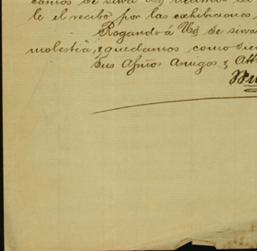 le el recibo por las exhibiciones,
Rogando á Vd se sirva
molestia, quedamos como siem
Sus Afmos Amigos y Att